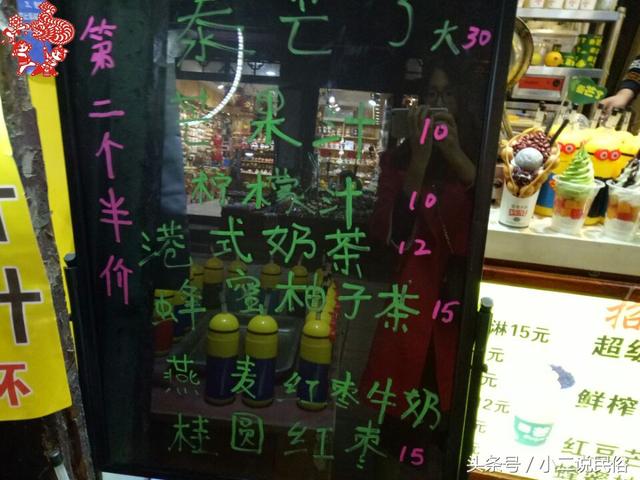 第二个半价
泰芒了 大30
芒果汁 10
柠檬汁 10
港式奶茶 12
蜂蜜柚子茶 15
燕麦红枣牛奶
桂圆红枣 15
汁
杯
招
淋15元
超级
元
鲜榨
2元
红豆芒
头条号/小二说民俗